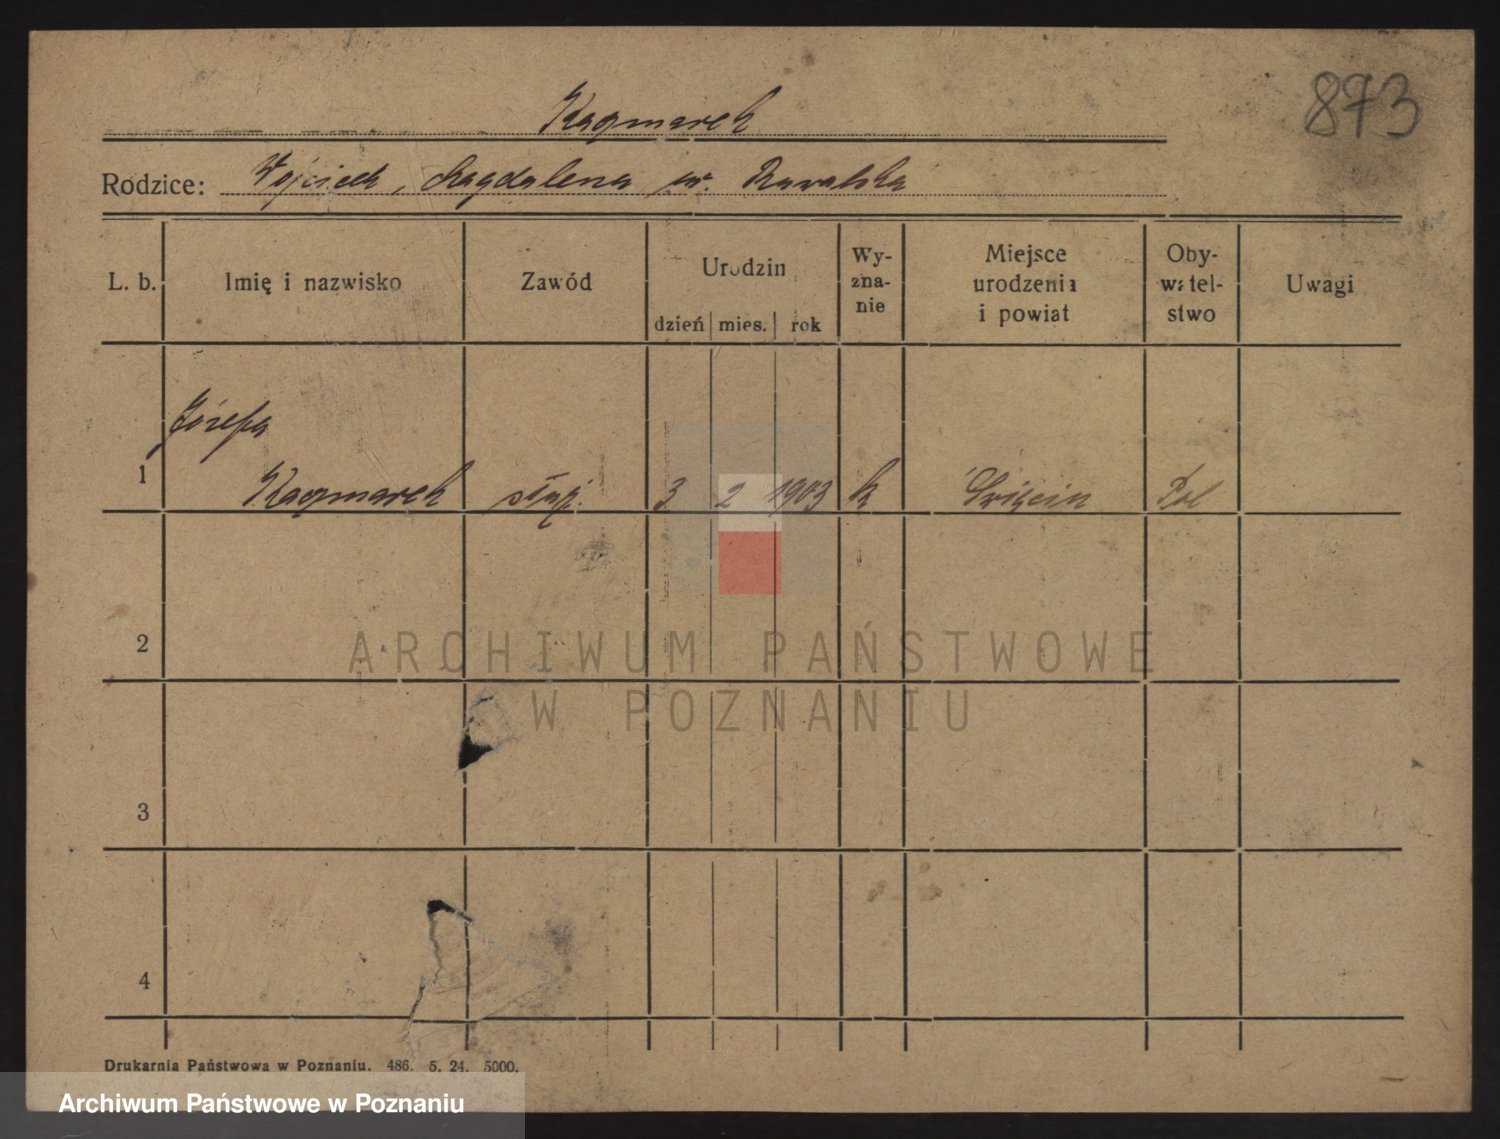 873
Kaczmarek
Rodzice: Wojciech, Magdalena ur. Kowalska
L. b. Imię i nazwisko Zawód Urodzin dzień mies. rok Wy-zna-nie Miejsce urodzenia i powiat Oby-watel-stwo Uwagi
Józefa
1 Kaczmarek służ. 3 2 1903 k Święcin Pol
2
ARCHIWUM PAŃSTWOWE
W POZNANIU
3
4
Drukarnia Państwowa w Poznaniu. 486. 5. 24. 5000.
Archiwum Państwowe w Poznaniu